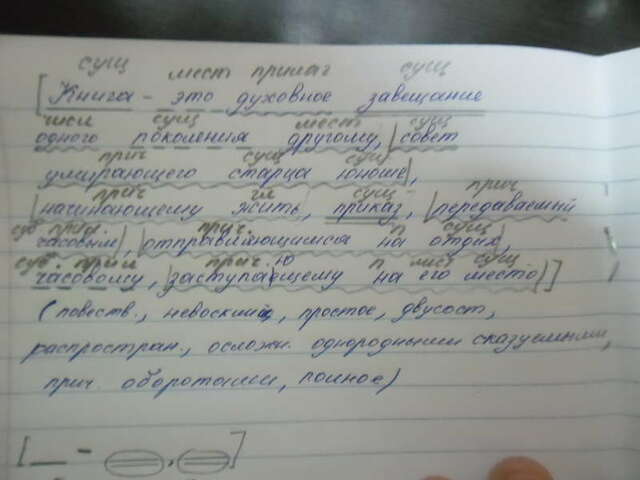 сущ мест прилаг сущ
[Книга - это духовное завещание
числ сущ мест сущ
одного поколения другому, совет
прич сущ сущ
умирающего старца юноше,
прич гл сущ прич
начинающему жить, приказ, передаваемый
суб прил. прич. п сущ
часовым, отправляющимся на отдых,
суб прил прич. ю п мест сущ
часовому, заступающему на его место)]
(повеств., невосклиц., простое, двусост,
распростран., осложн. однородными сказуемыми,
прич. оборотами, полное)
[ - , ]